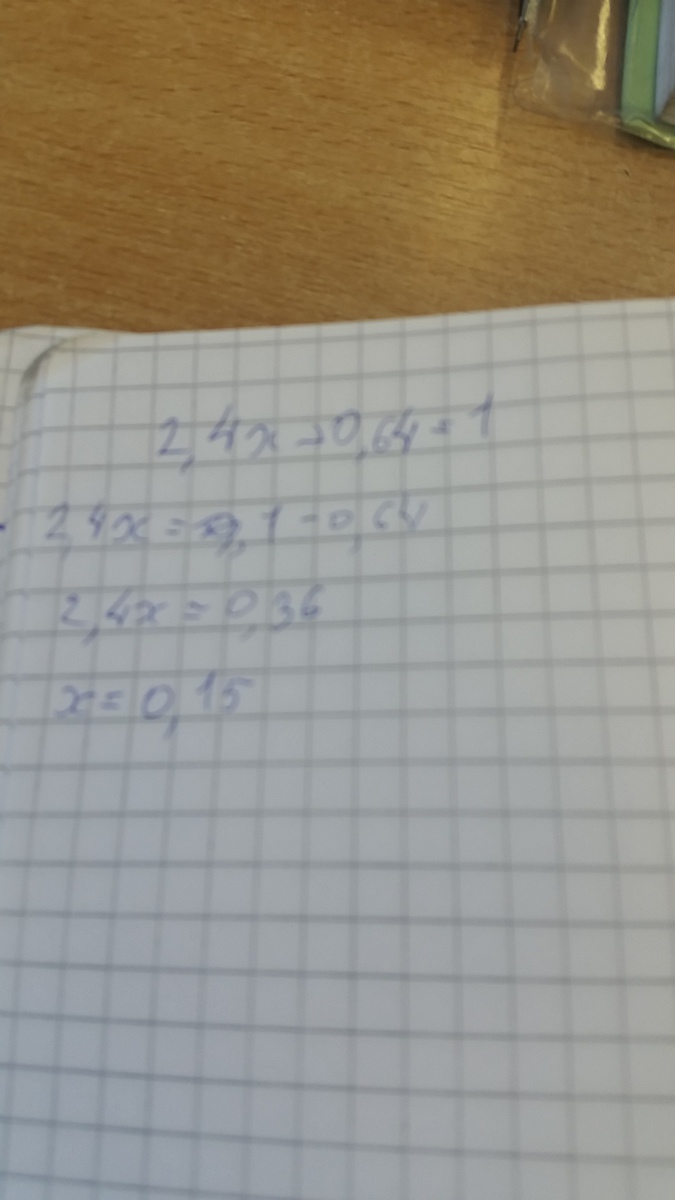 2,4x + 0,64 = 1
2,4x = 1 - 0,64
2,4x = 0,36
x = 0,15